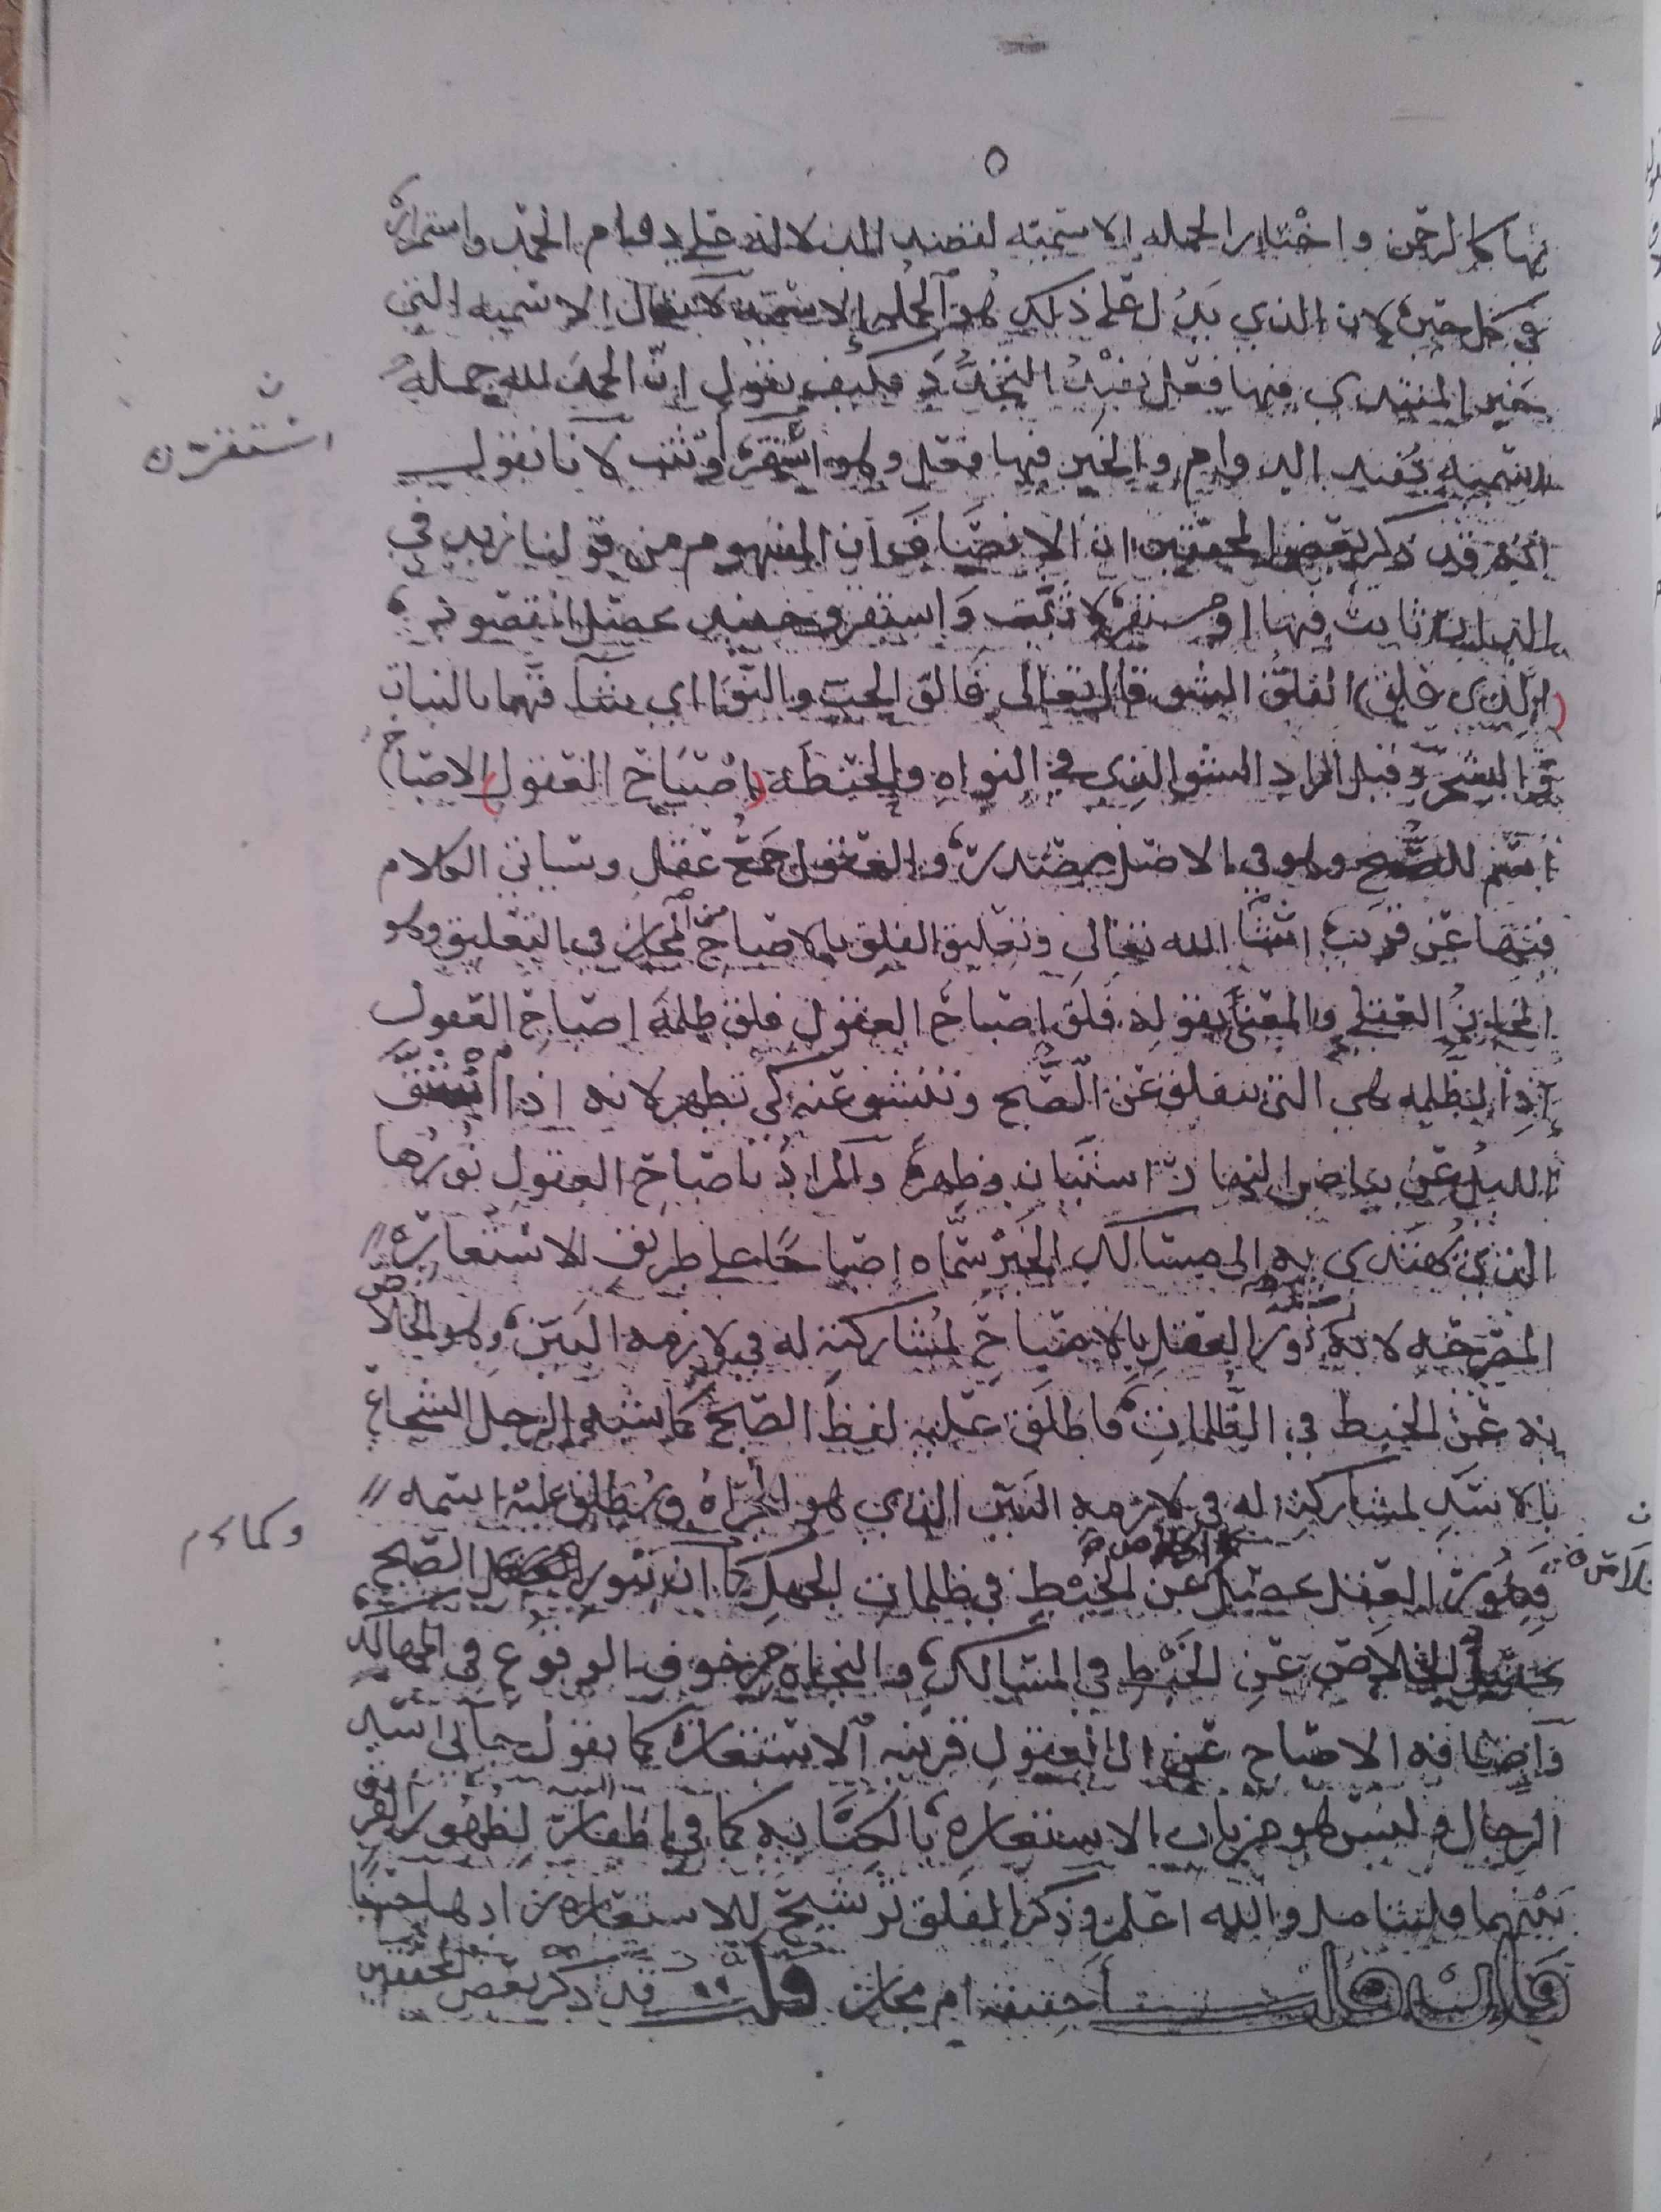 ٥
بها كالرحمن واختار الجمله الاسميه لقصد الدلاله على دوام الحمد واستمراره
في كل حين لان الذي يدل على ذلك هو الجمله الاسميه لا يقال الاسميه التي
خبر المبتدى فيها فعل يفيد التجدد فكيف يقول ان الحمد لله جملة
اسميه تفيد الدوام والخبر فيها فعل وهو استقر او ثبت لانا نقول
انه قد ذكر بعض المحققين ان الانصاف ان المفهوم من قولنا زيد في
الدار ثابت فيها او مستقر لا ثبت واستقر وحينئذ
(الذي فلق) الفلق الشق قال تعالى فالق الحب والنوا اي بالنبات
والشجر وقيل المراد الشق الذي في النواه والحنطه (اصباح العقول) الاصباح
اسم للصبح وهو في الاصل مصدر والعقول جمع عقل وسياتي الكلام
فيها عن قريب انشا الله تعالى وتعليق الفلق بالاصباح من المجاز في التعليق وهو
المجاز العقلي والمعنى بقوله فلق اصباح العقول فلق ظلمة اصباح العقول
اذ الظلمه هي التي تنفلق عن الصبح وتنشق عنه كي تظهر لانه اذا انشق
الليل عن بياض النهار استبان وظهر والمراد باصباح العقول نورها
الذي يهتدى به الى مسالك الخير سماه اصباحا على طريق الاستعاره
المصرحه لانه نور العقل بالاصباح لمشاركته له في لازمه البين وهو الخلاص
به عن الخبط في الظلمات فاطلق عليه لفظ الصبح كما يشبه الرجل الشجاع
بالاسد لمشاركته له في لازمه البين الذي هو الجراة ويطلق عليه اسمه
فنور العقل عن الخبط في ظلمات الجهل كما ان بنور الصبح
الخلاص عن الخبط في المسالك والنجاه من خوف الوقوع في المهالك
واضافه الاصباح الى العقول قرينه الاستعاره كما يقول اسد
الرجال وليس هو من باب الاستعاره بالكنايه كما في اظفار المنيه لظهور الفرق
بينهما فليتامل والله اعلم وذكر الفلق ترشيح للاستعاره زادها حسنا
احقيقه ام مجاز قلت قد ذكر بعض المحققين
استقر ن
وكماءم